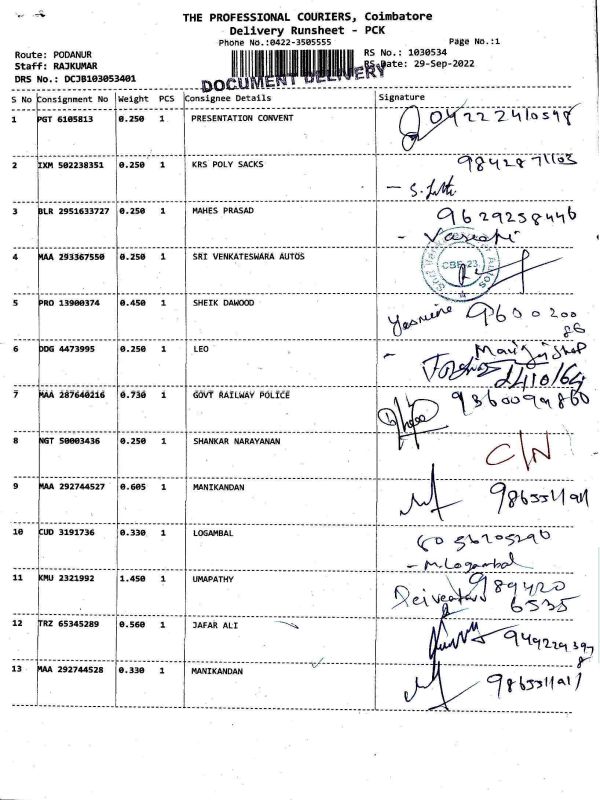 THE PROFESSIONAL COURIERS, Coimbatore
Delivery Runsheet - PCK
Phone No.:0422-3505555 Page No.:1
Route: PODANUR RS No.: 1030534
Staff: RAJKUMAR RS Date: 29-Sep-2022
DRS No.: DCJB103053401
DOCUMENT DELIVERY
S No Consignment No Weight PCS Consignee Details Signature
1 PGT 6105813 0.250 1 PRESENTATION CONVENT 04222410548
2 IXM 502238351 0.250 1 KRS POLY SACKS
3 BLR 2951633727 0.250 1 MAHES PRASAD 9629258446
4 MAA 293367550 0.250 1 SRI VENKATESWARA AUTOS
CBE-23
5 PRO 13900374 0.450 1 SHEIK DAWOOD Yasmine 9600200
86
6 DDG 4473995 0.250 1 LEO
7 MAA 287640216 0.730 1 GOVT RAILWAY POLICE
8 NGT 50003436 0.250 1 SHANKAR NARAYANAN C/N
9 MAA 292744527 0.605 1 MANIKANDAN
10 CUD 3191736 0.330 1 LOGAMBAL
- M.Logambal
11 KMU 2321992 1.450 1 UMAPATHY 989420
6535
12 TRZ 65345289 0.560 1 JAFAR ALI
13 MAA 292744528 0.330 1 MANIKANDAN